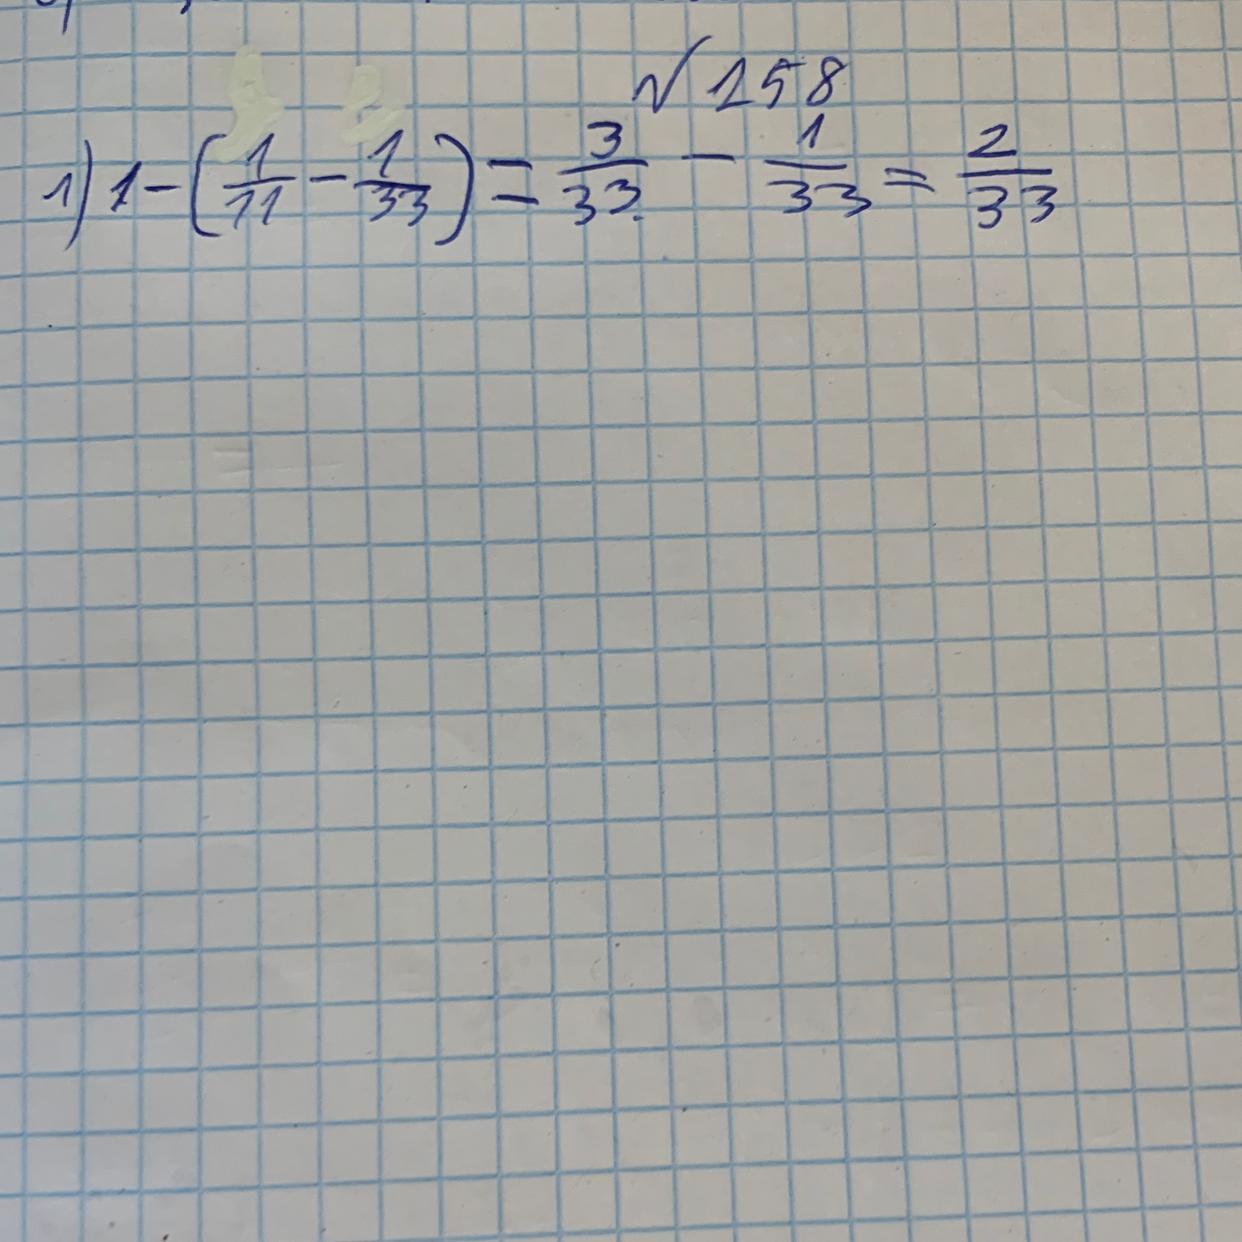 √258
1) 1 - (1/11 - 1/33) = 3/33 - 1/33 = 2/33